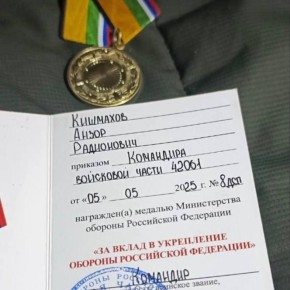 Кишмахов
Анзор
Радионович
приказом Командира
войсковой части 42061
от «05» 05 2025 г. № 8дсп
награжден(а) медалью Министерства
обороны Российской Федерации
«ЗА ВКЛАД В УКРЕПЛЕНИЕ
ОБОРОНЫ РОССИЙСКОЙ ФЕДЕРАЦИИ»
Командир